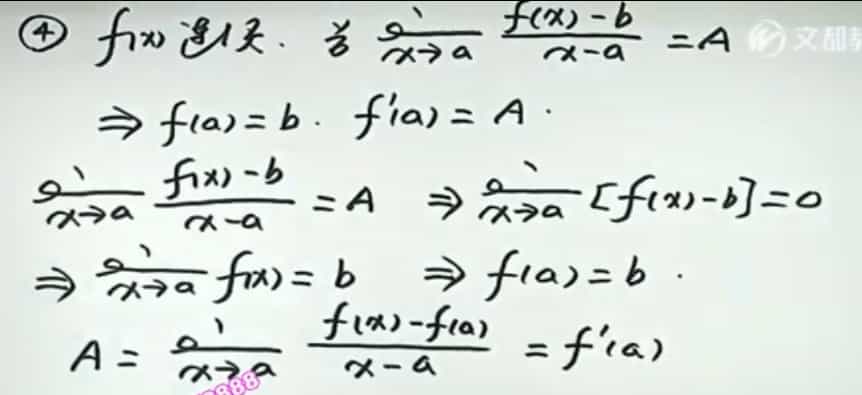 ④ f(x)连续. 若 lim x→a (f(x)-b)/(x-a) = A
文都
⇒ f(a)=b. f'(a)=A.
lim x→a (f(x)-b)/(x-a) = A ⇒ lim x→a [f(x)-b]=0
⇒ lim x→a f(x)=b ⇒ f(a)=b.
A = lim x→a (f(x)-f(a))/(x-a) = f'(a)
888